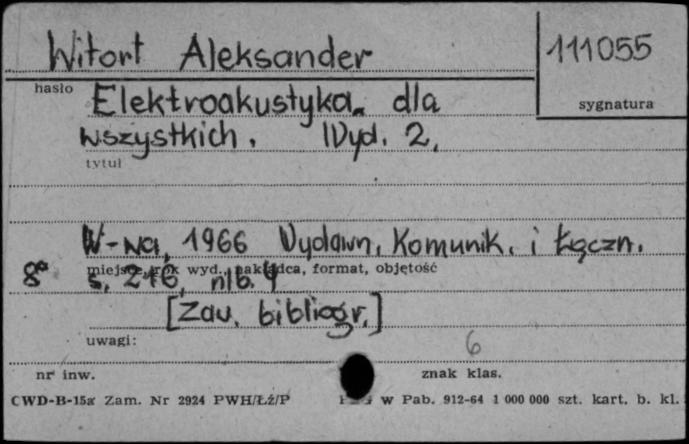 Witort Aleksander
111055
hasło
sygnatura
Elektroakustyka dla
wszystkich. Wyd. 2.
tytuł
W-wa, 1966 Wydawn. Komunik. i Łączn.
miejsce, rok wyd., nakładca, format, objętość
8° s. 216, nlb. 4
[Zaw. bibliogr.]
uwagi:
6
nr inw.
znak klas.
CWD-B-15a Zam. Nr 2924 PWH/Łź/P
w Pab. 912-64 1 000 000 szt. kart. b. kl.